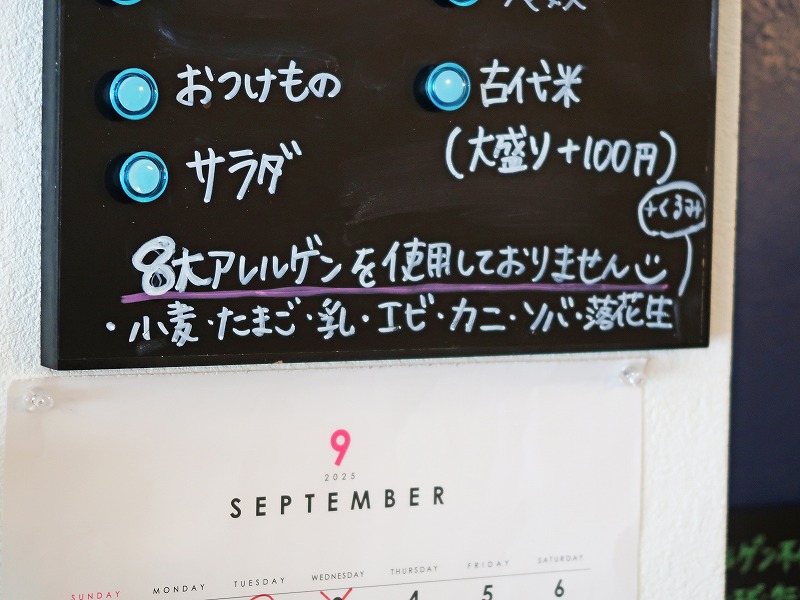 おつけもの
古代米
サラダ
(大盛り+100円)
+くるみ
8大アレルゲンを使用しておりません
・小麦・たまご・乳・エビ・カニ・ソバ・落花生
9
2025
SEPTEMBER
SUNDAY MONDAY TUESDAY WEDNESDAY THURSDAY FRIDAY SATURDAY
4 5 6